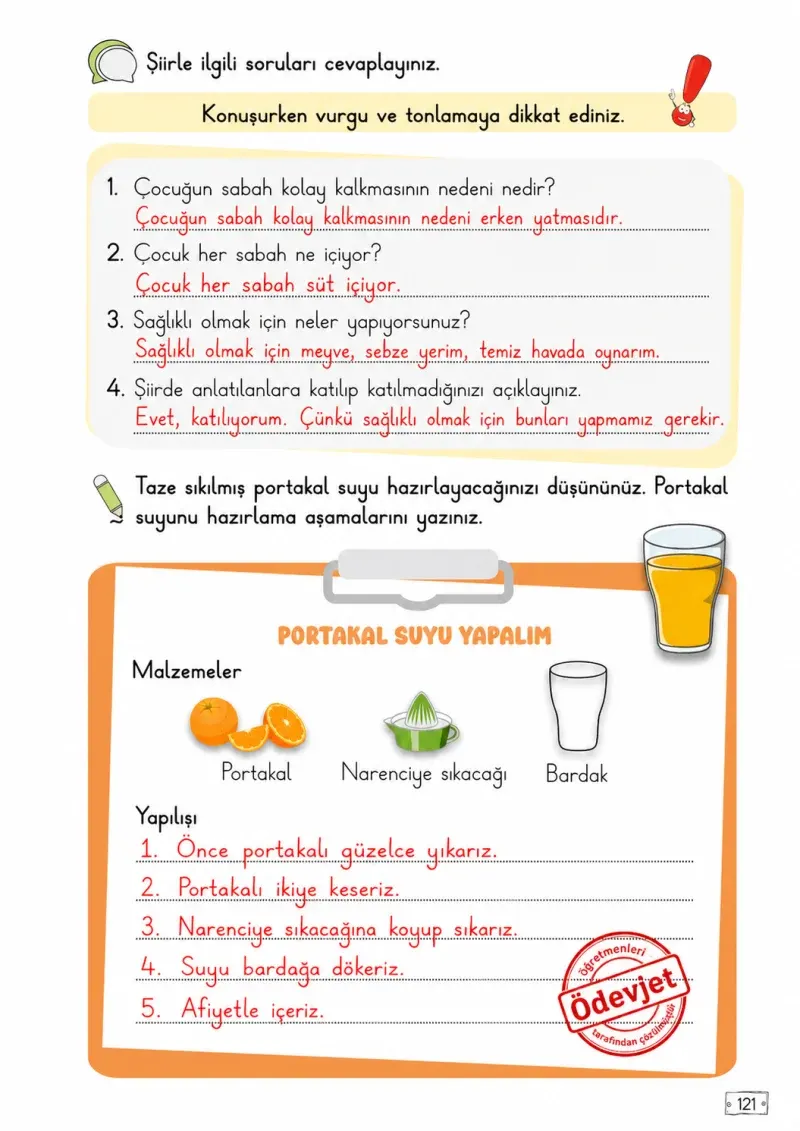 Şiirle ilgili soruları cevaplayınız.
Konuşurken vurgu ve tonlamaya dikkat ediniz.
1. Çocuğun sabah kolay kalkmasının nedeni nedir?
Çocuğun sabah kolay kalkmasının nedeni erken yatmasıdır.
2. Çocuk her sabah ne içiyor?
Çocuk her sabah süt içiyor.
3. Sağlıklı olmak için neler yapıyorsunuz?
Sağlıklı olmak için meyve, sebze yerim, temiz havada oynarım.
4. Şiirde anlatılanlara katılıp katılmadığınızı açıklayınız.
Evet, katılıyorum. Çünkü sağlıklı olmak için bunları yapmamız gerekir.
Taze sıkılmış portakal suyu hazırlayacağınızı düşününüz. Portakal
suyunu hazırlama aşamalarını yazınız.
PORTAKAL SUYU YAPALIM
Malzemeler
Portakal Narenciye sıkacağı Bardak
Yapılışı
1. Önce portakalı güzelce yıkarız.
2. Portakalı ikiye keseriz.
3. Narenciye sıkacağına koyup sıkarız.
4. Suyu bardağa dökeriz.
5. Afiyetle içeriz.
öğretmenleri
Ödevjet
tarafından çözülmüştür
121